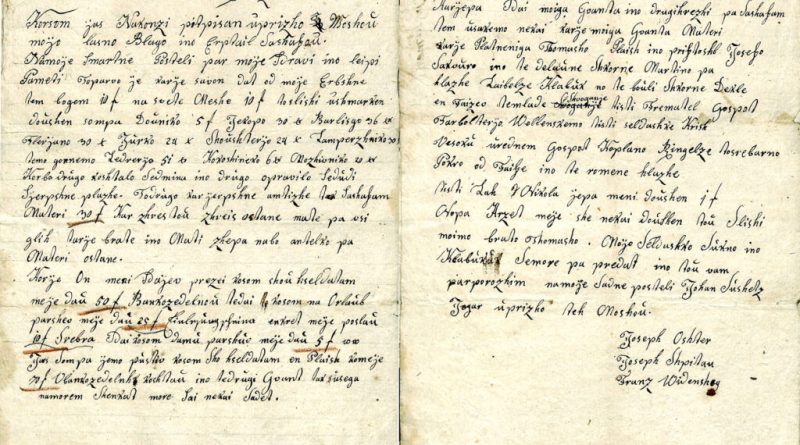 Korsom jas Naronzi potpisan uprizho Moshou
mojo lasno Blago ino Erptail Sashafau.
Namoje Smartne Posteli par moje Sdravi ino leipoi
Pameti Toparvo je karje savon dat od moje Erbshne
tem bogem 10 f na svete Meshe 10 f toslishi ushmarken
doushen sompa Dounisko 5 f Jekopo 30 x Barlisgo 36 x
Florjano 30 x Jurko 24 x Shoushterjo 24 x Lamperzhniko 30
temo gornemo Ledrerjo 51 x Kokoshineko 6 x Mozhivniko 20 x
Korbo drugo koshtalo Sedmina ino drugo opravilo Sedudi
Szerpshne plazhe. Todrugo kar jerpshne amtizhe tar Sashafam
Materi 30 f Kar zhrestou zhreis ostane mate pa vsi
glih tarje brate ino Mati zhepa nabo antelko pa
Materi ostane.
Korje On meni Dajev prezei kosom shou kseldatam
meje dau 50 f Bankozedelnou tedai kosom na Orlaub
parsheo meje dau 25 f enkret meje poslau
10 f Srebra Dai kosom damu parshuv meje dau 5 f ww
Jas sompa jemo pustiv kosom Sho kseldatam en Plaish komeje
70 f Vbankozedelnh koshtau ino tedrugi Goant tar susega
namorem Shenkat more Sai nekai Sadet.
Karjepa Ddai moiga Goanta ino drugihrezhi pa Sashafam
tem usakemo nekai karje moiga Goanta Materi
karje Platneniga Thomasho Plaish ino prishtoshl Josepho
Sakvuro ino te delaune Shkorne Martino pa
klazhe Laibelze Klabuk no te bouli Shkorne Dekle
en Faizeo temlade tisti Fremutel Gospot
Barbolterjo Wollenskemo tisti seldashke Krish
Vesoku urednem Gospot Koplano Ringelze tosrebarno
Pokso od Faifje ino te romene hlazhe
tisti Lak VNikola jepa meni doushen 1 f
Vorpa Arzet meje she nekai doushen tou Slishi
moimo brato Oshomasho. Mojo Seldashko Sukno ino
Klabukuk Semore pa predat ino tou vam
parporozhim namoje Sadne posteli Johan Sushetz
Jogar uprizho teh Moshou.
Joseph Oshter
Joseph Shpitau
Franz Widenshog